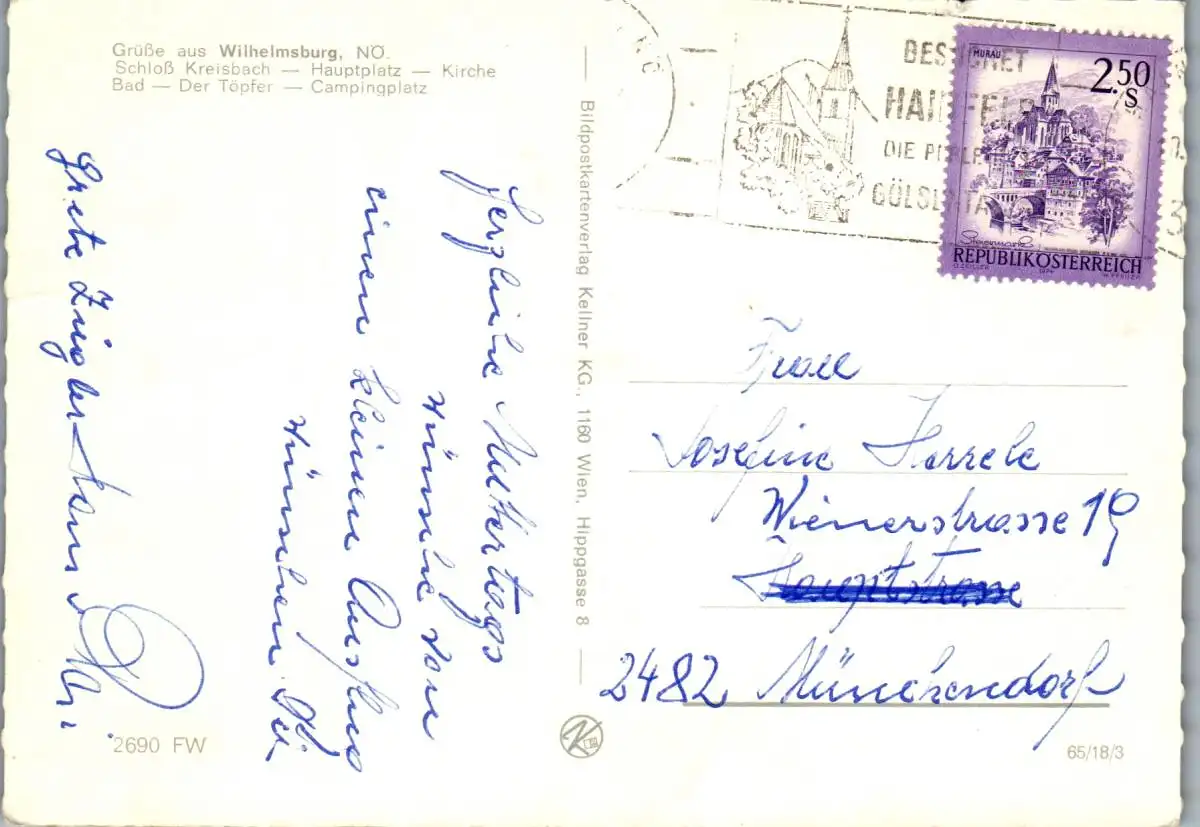 Grüße aus Wilhelmsburg, NÖ.
Schloß Kreisbach — Hauptplatz — Kirche
Bad — Der Töpfer — Campingplatz
Herzliche Muttertags
wünsche von
einen kleinen Ausflug
wünschen
Grete
Bildpostkartenverlag Kellner KG., 1160 Wien, Hippgasse 8
BESUCHET
HAINFELD
DIE PERLE
GÖLSENTA
MURAU
2.50
S
Steiermark
REPUBLIK ÖSTERREICH
Frau
Josefine
Wienerstrasse 19
Hauptstrasse
2482 Münchendorf
2690 FW
65/18/3